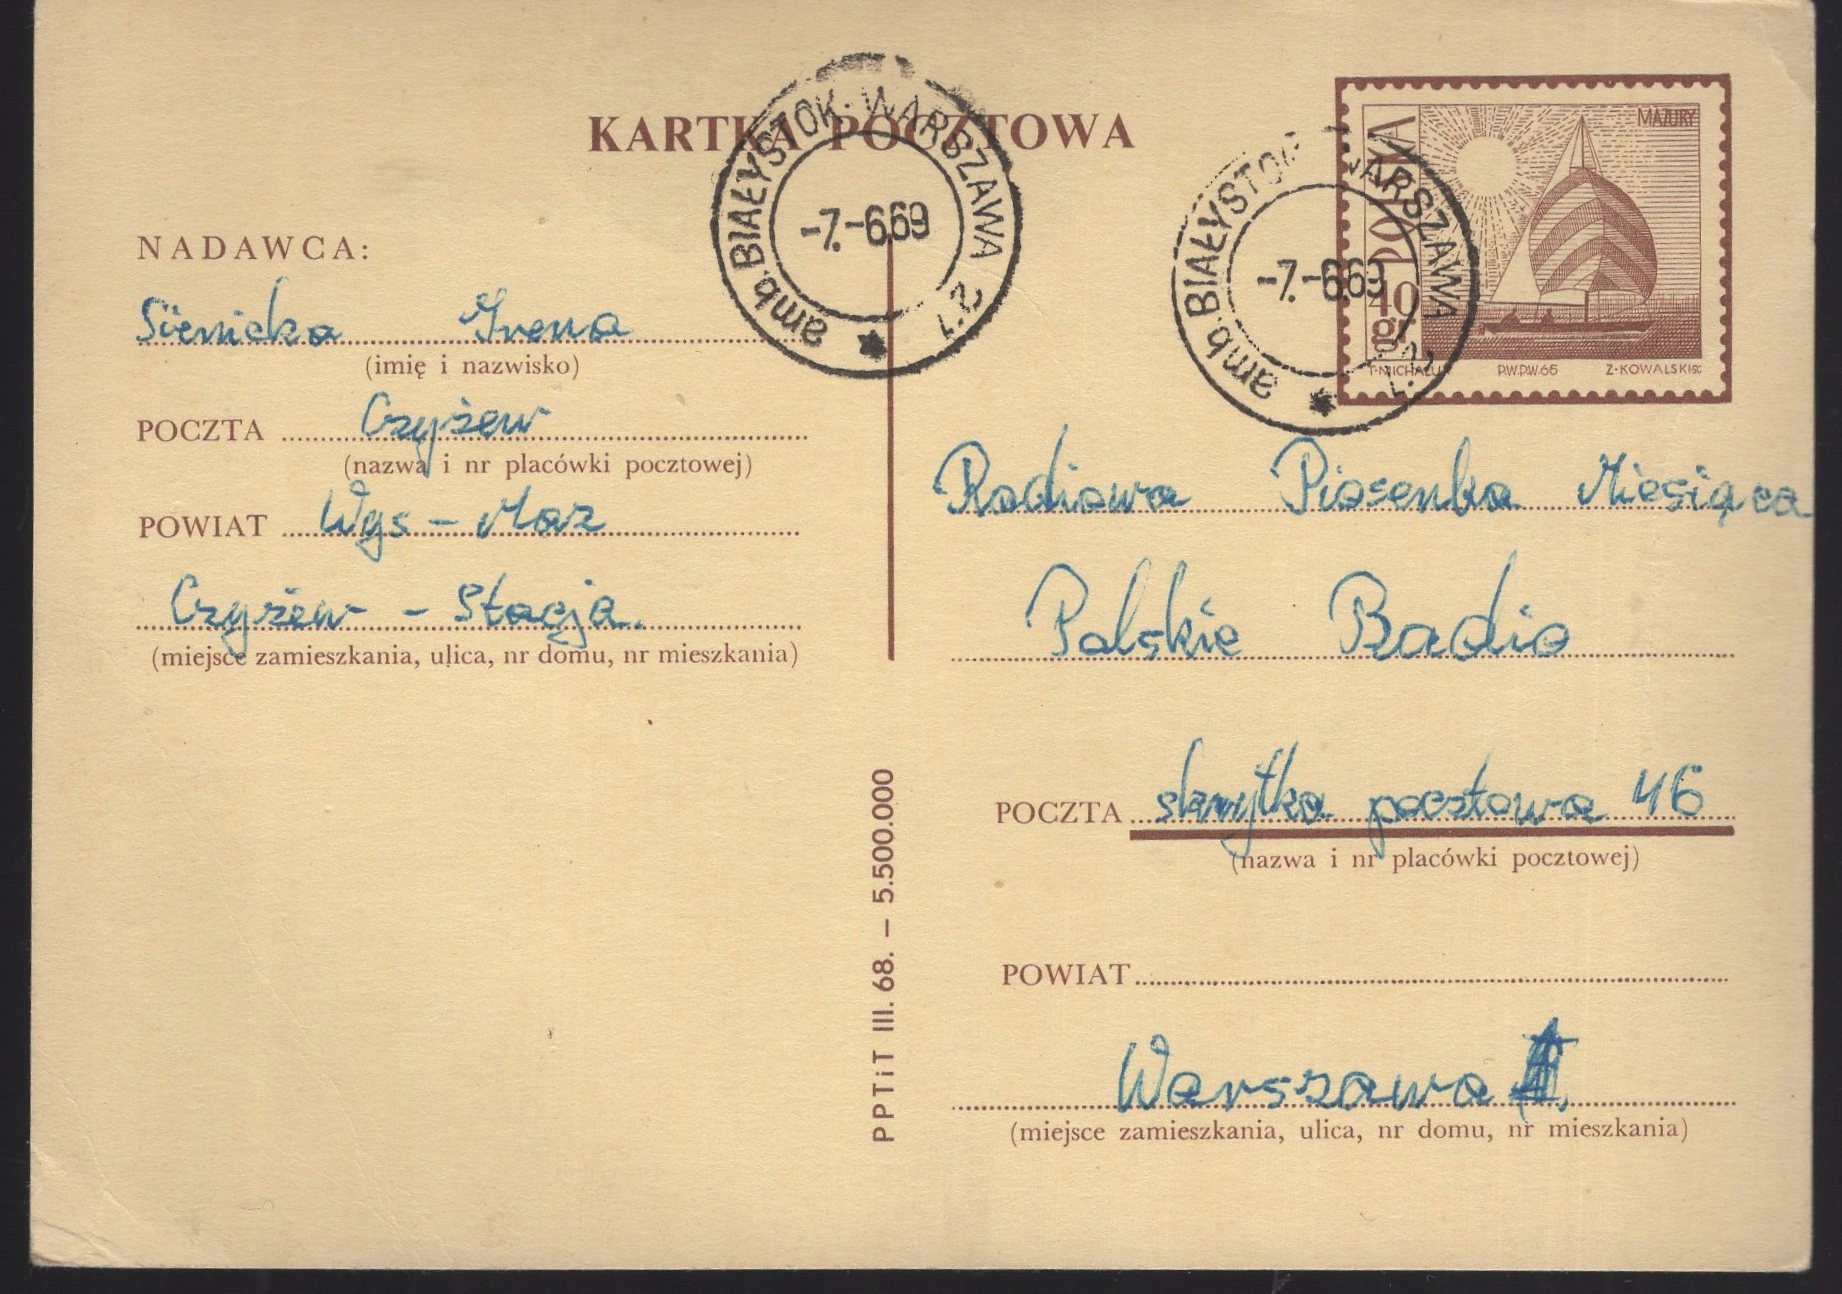 KARTKA POCZTOWA
amb. BIAŁYSTOK - WARSZAWA 21
-7.-6.69
amb. BIAŁYSTOK WARSZAWA 21
-7.-6.69
MAZURY
POLSKA
40 gr
T. MICHALUK P.W.P.W.66 Z. KOWALSKI SC.
NADAWCA:
Sienicka Irena
(imię i nazwisko)
POCZTA Czyżew
(nazwa i nr placówki pocztowej)
POWIAT Wys - Maz
Czyżew - Stacja.
(miejsce zamieszkania, ulica, nr domu, nr mieszkania)
PPTiT III. 68. – 5.500.000
Radiowa Piosenka Miesiąca
Polskie Radio
POCZTA skrytka pocztowa 46
(nazwa i nr placówki pocztowej)
POWIAT
Warszawa
(miejsce zamieszkania, ulica, nr domu, nr mieszkania)